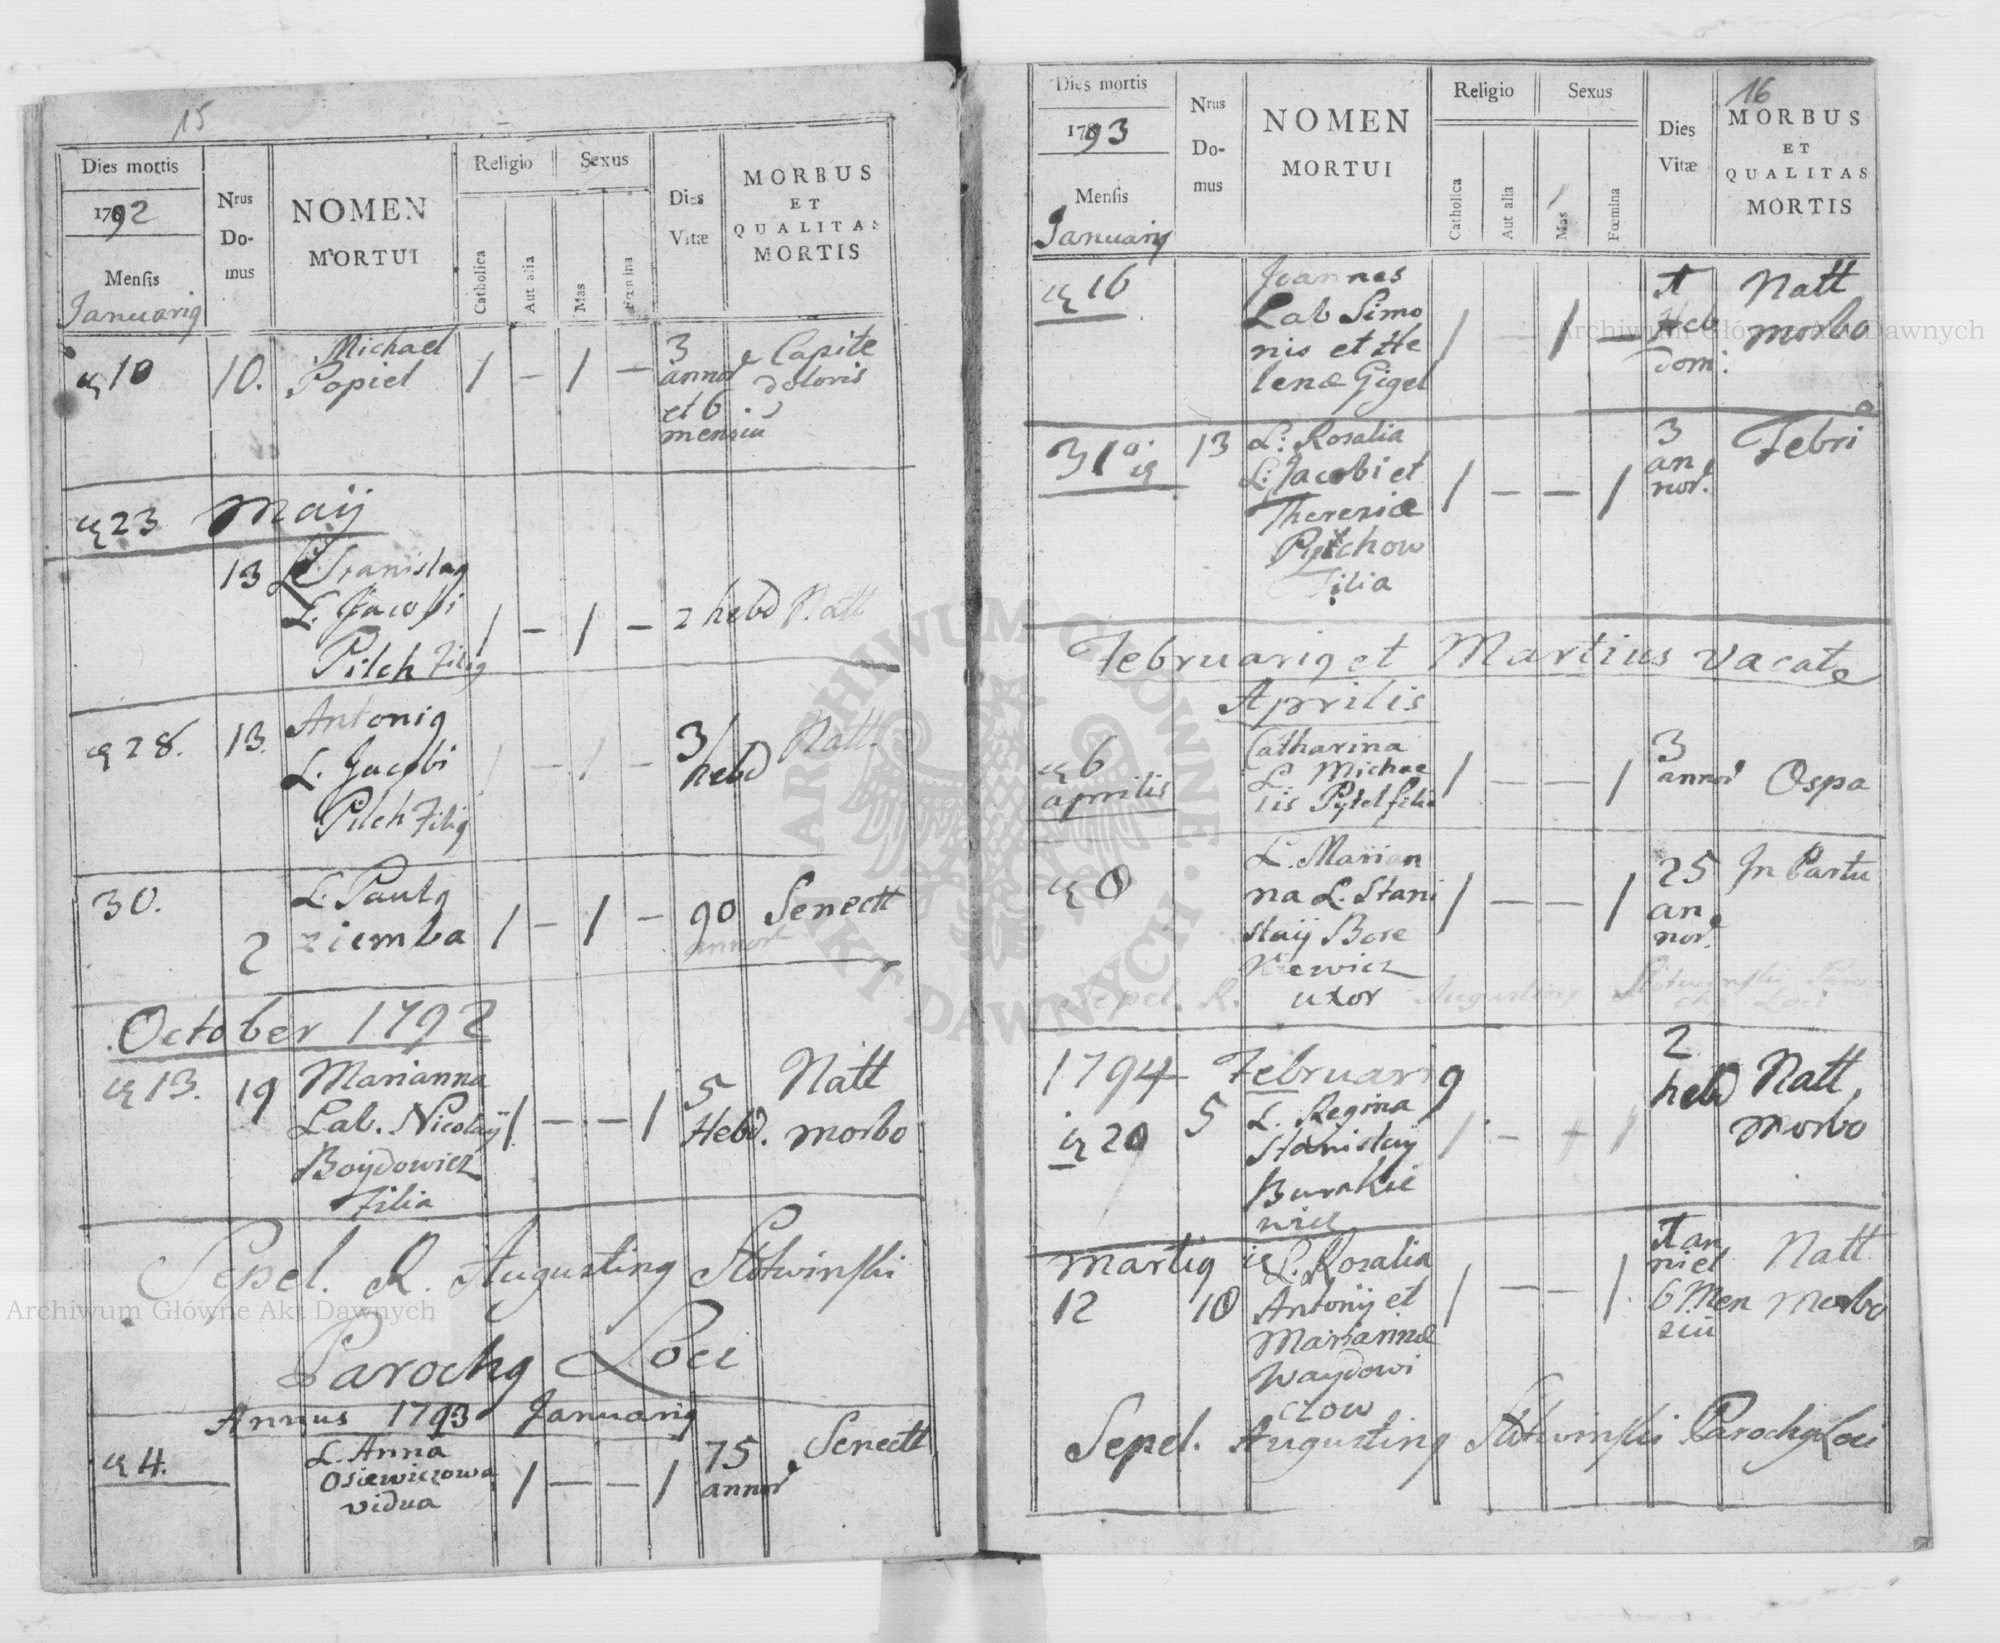 15
Dies mortis
1792
Mensis
Januariq
Nrus
Do-
mus
NOMEN
MORTUI
Religio
Sexus
Catholica
Aut alia
Mas
Fœmina
Dies
Vitæ
MORBUS
ET
QUALITAS
MORTIS
10 10. Michael
Popiel
1 – 1 –
3
annor
et 6
mensiu
Capite
doloris
23 Maij
13 Stanislaq
L. Jacobi
Pilch Filiq
1 – 1 –
2 hebd Natt
28. 13. Antoniq
L. Jacobi
Pilch Filiq
1 – 1 –
3
hebd
Natt.
30.
2
L. Paulq
ziemba
1 – 1 –
90
annor
Senectt
October 1792
13. 19 Marianna
Lab. Nicolaij
Boijdowicz
Filia
1 – – 1
5
Hebd.
Natt
morbo
Sepel. R. Augustinq Słotwinski
Parochq Loci
Annus 1793 Januariq
4.
L. Anna
Osiewiczowa
vidua
1 – – 1
75
annor
Senectt
16
Dies mortis
1793
Mensis
Januarij
Nrus
Do-
mus
NOMEN
MORTUI
Religio
Sexus
Catholica
Aut alia
Mas
Fœmina
Dies
Vitæ
MORBUS
ET
QUALITAS
MORTIS
16
Joannes
Lab Simo
nis et He
lenæ Gigel
1 – 1 –
Heb
dom:
Natt
morbo
31 13 L: Rosalia
L: Jacobi et
Theresiæ
Filia
1 – – 1
3
an
nor.
Febri
Februariq et Martius vacat
Aprilis
6
aprilis
Catharina
L. Michae
lis Pytel filia
1 – – 1
3
annor
Ospa
8
L. Marian
na L. Stani
slaij Bore
Kiewicz
uxor
1 – – 1
25
an
nor.
In Partu
Sepel. R. Augustinq Słotwinski Paro
chq Loci
1794 Februariq
20 5 L. Regina
Stanislaij
Burakie
wicz
1 – + 1
2
hebd
Natt,
morbo
Martiq
12 10 L. Rosalia
Antonij et
Mariannæ
Waydowi
czow
1 – – 1
an
ni et
6 Men
siu
Natt
Morbo
Sepel. Augustinq Słotwinski Parochq Loci
Archiwum Główne Akt Dawnych
Archiwum Główne Akt Dawnych
ARCHIWUM GŁÓWNE · AKT DAWNYCH ·